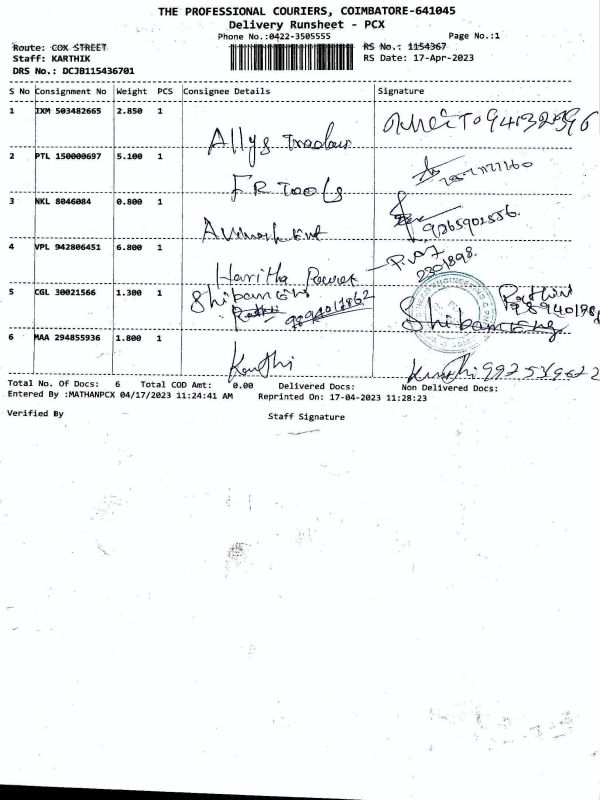 THE PROFESSIONAL COURIERS, COIMBATORE-641045
Delivery Runsheet - PCX
Phone No.:0422-3505555 Page No.:1
Route: COX STREET RS No.: 1154367
Staff: KARTHIK RS Date: 17-Apr-2023
DRS No.: DCJB115436701
S No Consignment No Weight PCS Consignee Details Signature
1 IXM 503482665 2.850 1
Allys Traders
2 PTL 150000697 5.100 1
FR Tools
3 NKL 8046084 0.800 1
9265902556.
4 VPL 942806451 6.800 1
Haritha Power
2301898.
5 CGL 30021566 1.300 1
Shibam Eng
9894012862
Shibam Eng
6 MAA 294855936 1.800 1
Karthi
Karthi 9925339622
Total No. Of Docs: 6 Total COD Amt: 0.00 Delivered Docs: Non Delivered Docs:
Entered By :MATHANPCX 04/17/2023 11:24:41 AM Reprinted On: 17-04-2023 11:28:23
Verified By Staff Signature